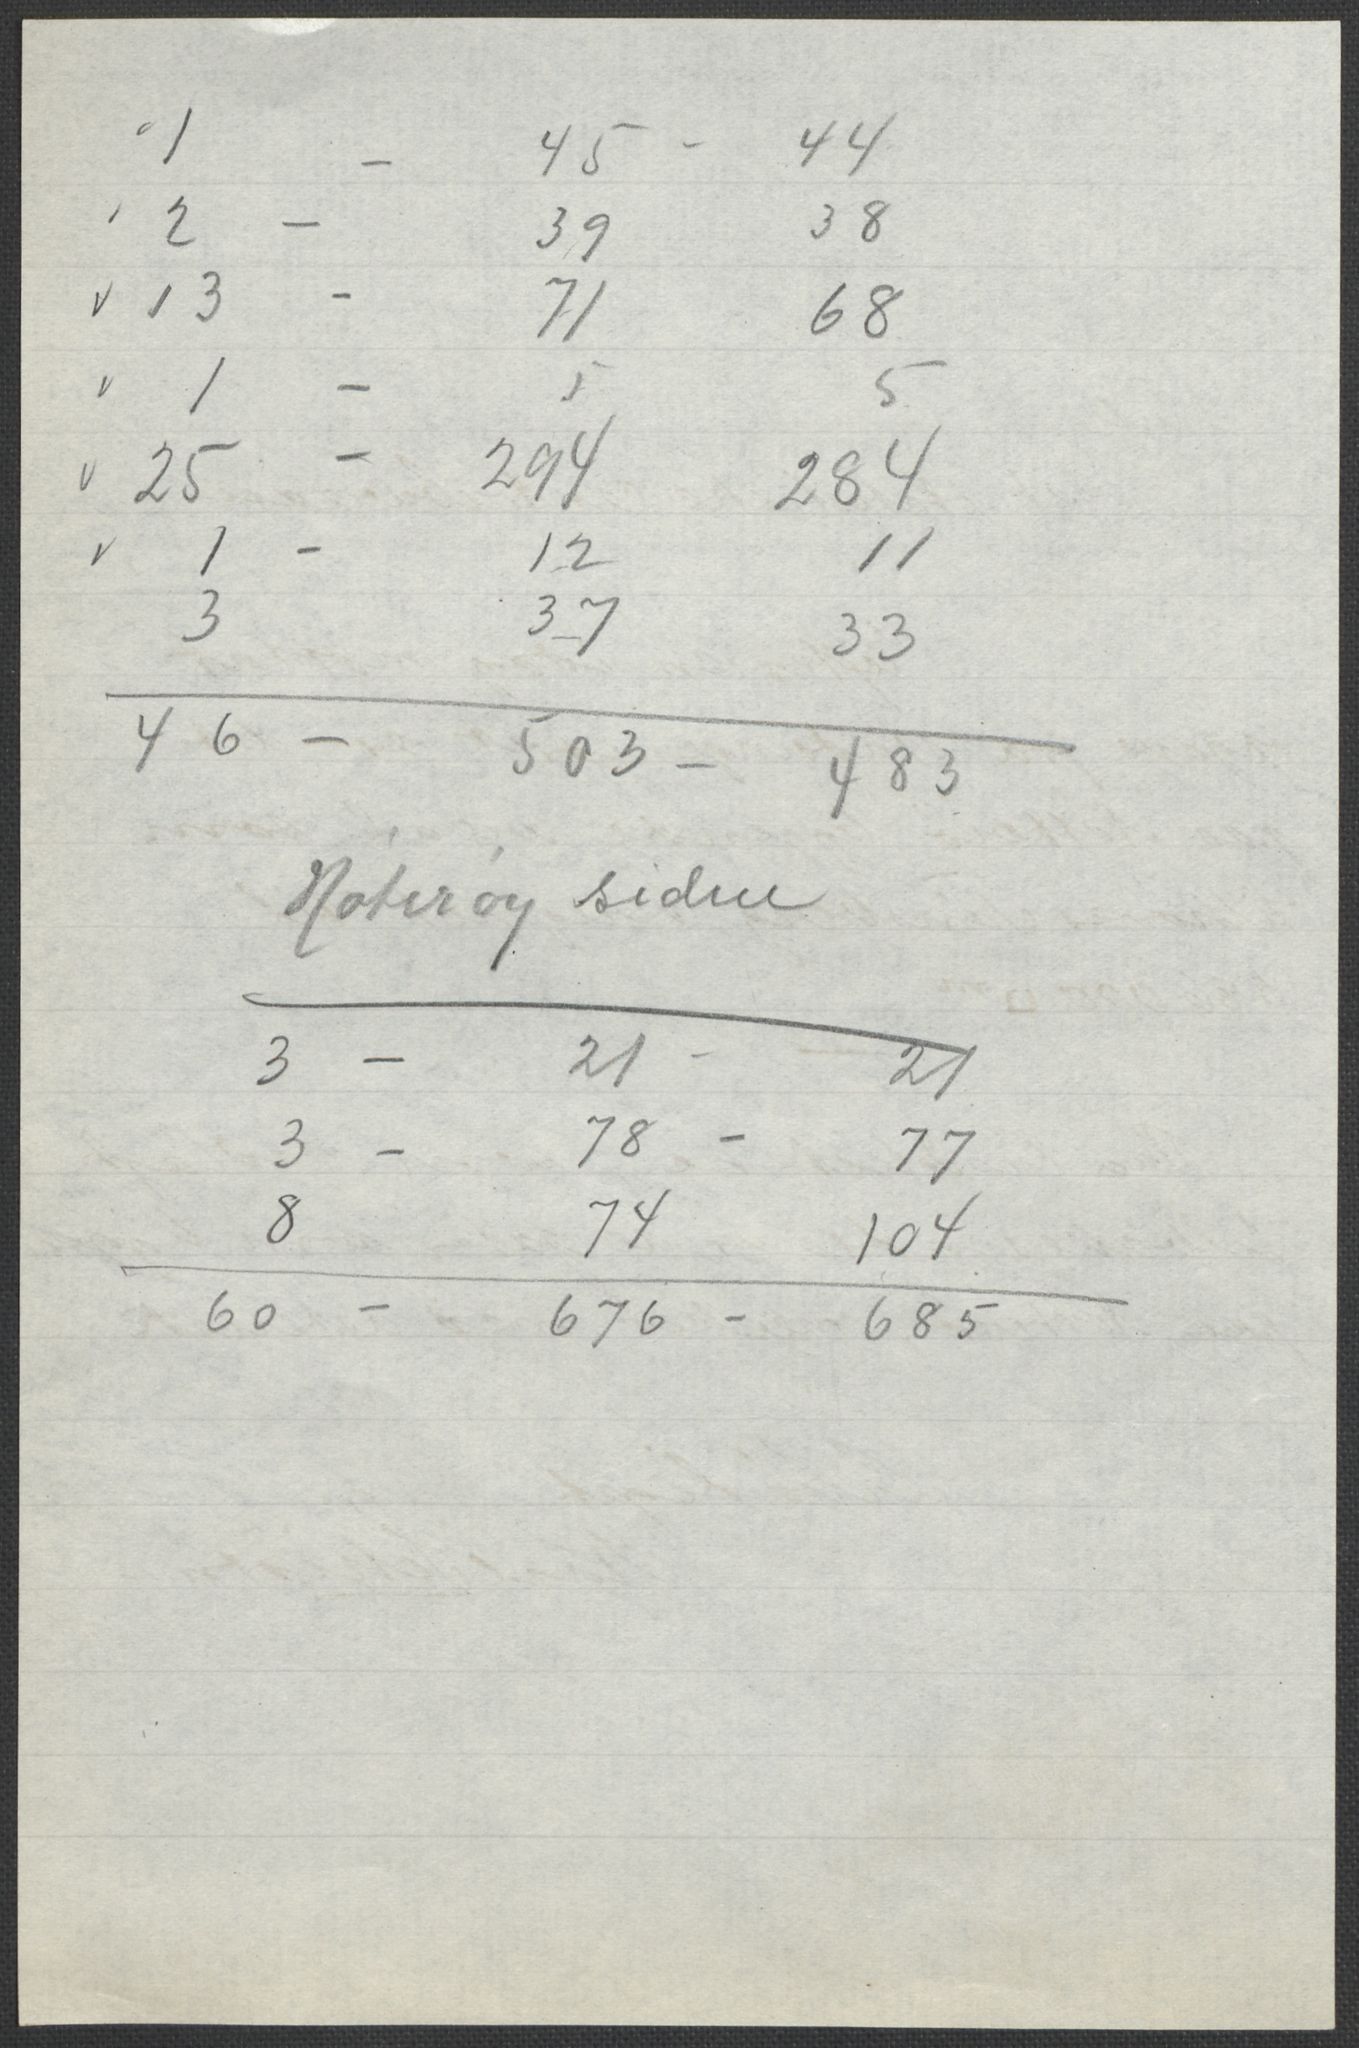 1 - 45 - 44
2 - 39 38
v 13 - 71 68
v 1 - 5 5
v 25 - 294 284
v 1 - 12 11
3 37 33
46 - 503 - 483
Nóteróy sidue
3 - 21 - 21
3 - 78 - 77
8 74 104
60 - 676 - 685